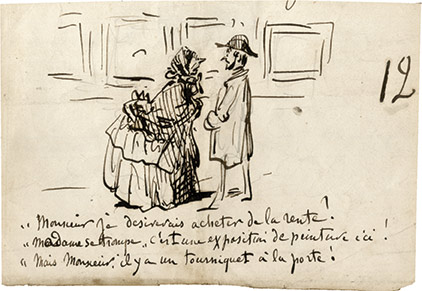 12
" Monsieur je desirerais acheter de la rente !
" Madame se trompe, c'est une exposition de peinture ici !
" Mais Monsieur, il y a un tourniquet à la porte !